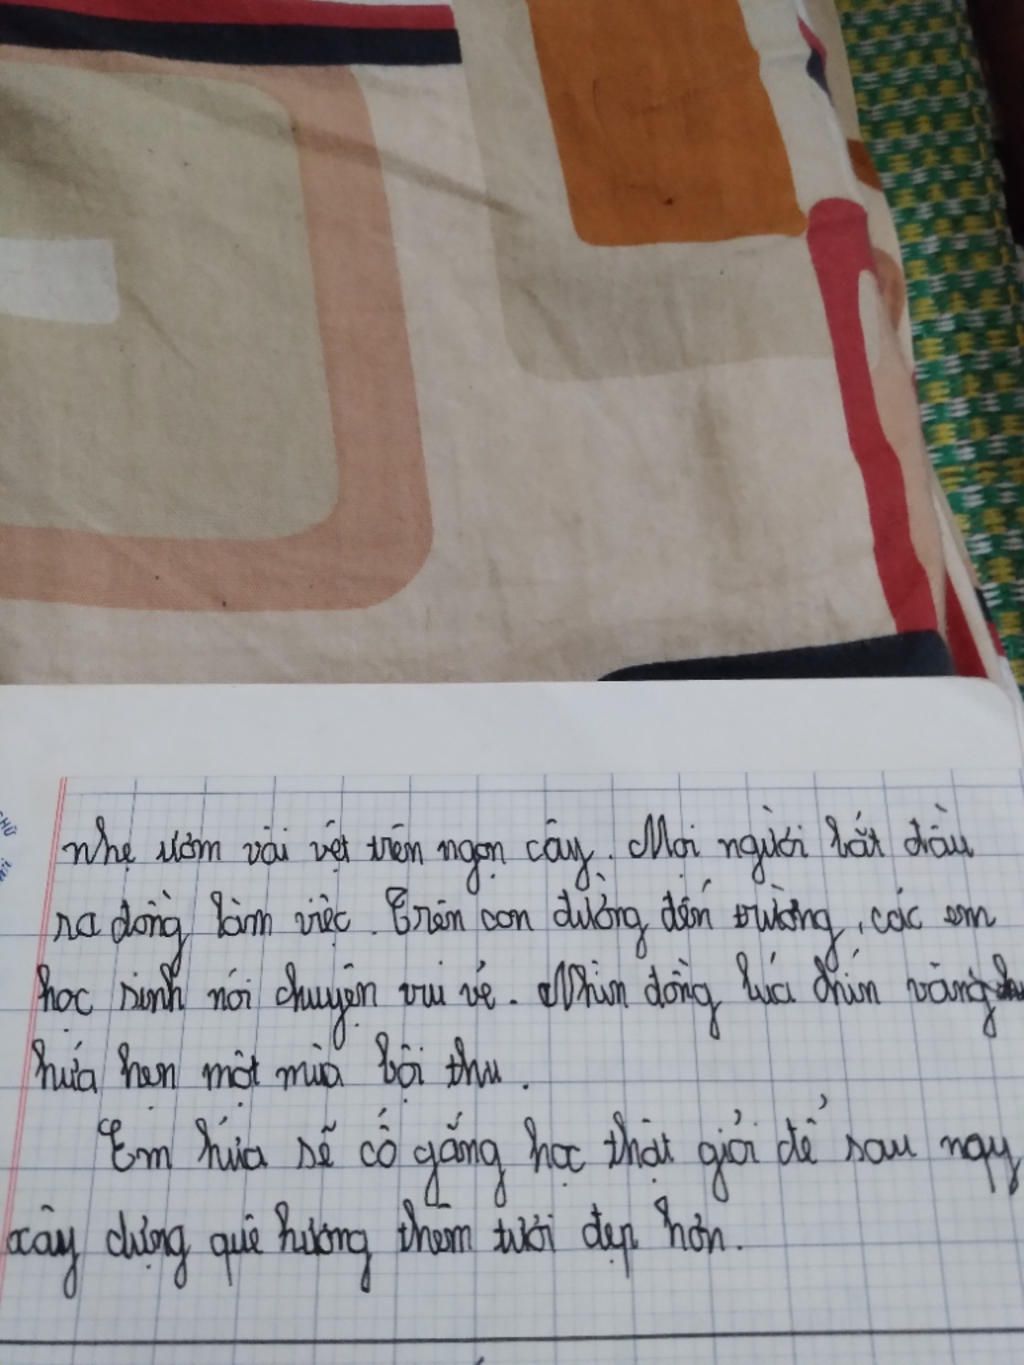 nhẹ ướm vài vệt trên ngọn cây. Mọi người bắt đầu
ra đồng làm việc. Trên con đường đến trường, các em
học sinh nói chuyện vui vẻ. Nhìn đồng lúa chín vàng
hứa hẹn một mùa bội thu.
Em hứa sẽ cố gắng học thật giỏi để sau nay
xây dựng quê hương thêm tươi đẹp hơn.